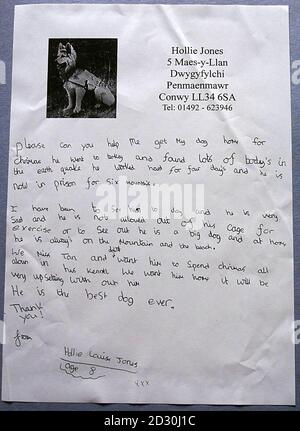 Hollie Jones
5 Maes-y-Llan
Dwygyfylchi
Penmaenmawr
Conwy LL34 6SA
Tel: 01492 - 623946
Please can you help me get my dog home for
chrismas he went to turkey and found lots of body's in
the earth quake he worked hard for four days and he is
now in prison for six months.
I have been to see him to day and he is very
Sad and he is not allowed out of his cage for
exercise or to see out he is a big dog and at home
he is always on the Mountain and the beach.
We Miss Tan and dont want him to spend chrimas all
alown in his kenall We want him home it will be
very upsetting with out him
He is the best dog ever.
Thank
you!
from
Hollie Louise Jones
Age 8
xxx
alamy
D230J1C